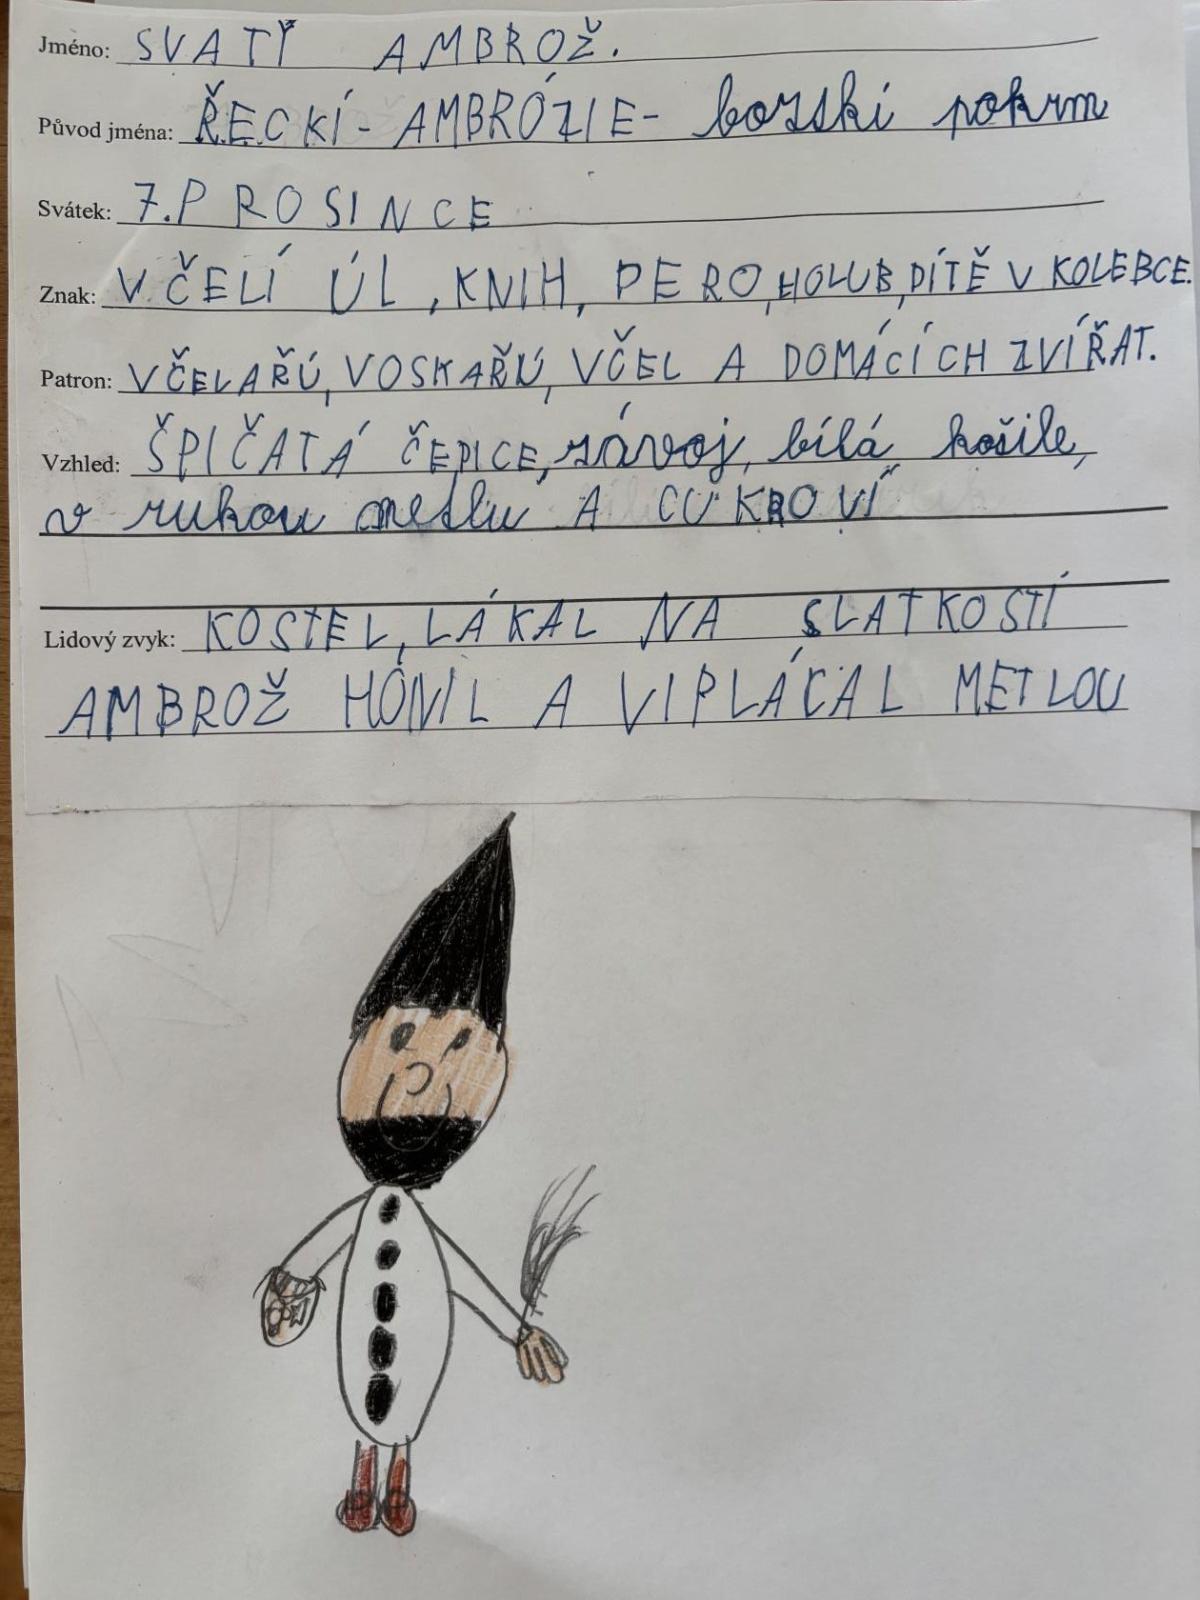 Jméno: SVATÝ AMBROŽ.
Původ jména: ŘECKÍ - AMBRÓZIE - bozski pokrm
Svátek: 7. PROSINCE
Znak: VČELÍ ÚL, KNIH, PERO, HOLUB, DÍTĚ V KOLEBCE.
Patron: VČELAŘŮ, VOSKAŘŮ, VČEL A DOMÁCÍCH ZVÍŘAT.
Vzhled: ŠPIČATÁ ČEPICE, závoj, bílá košile,
v rukou metlu A CUKROVÍ
Lidový zvyk: KOSTEL, LÁKAL NA SLATKOSTI
AMBROŽ HÓNIL A VIPLÁCAL METLOU